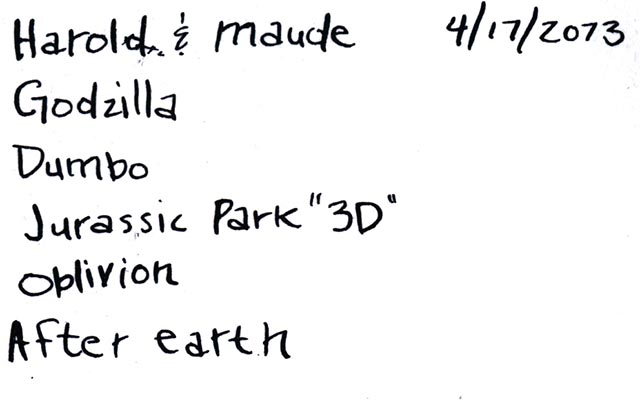 Harold & maude 4/17/2073
Godzilla
Dumbo
Jurassic Park "3D"
Oblivion
After earth